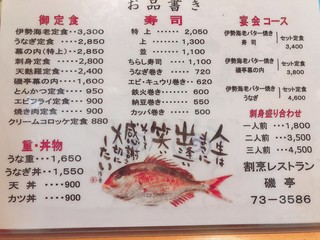 お品書き
御定食
伊勢海老定食…3,300
うなぎ定食……2,200
幕の内(特上)…2,850
刺身定食……2,800
天麩羅定食……2,400
幕の内定食……1,650
とんかつ定食…950
エビフライ定食…900
焼き肉定食……900
クリームコロッケ定食 880
重・丼物
うな重…1,650
うなぎ丼…1,550
天丼……900
カツ丼……900
寿司
特上……2,050
上……1,300
並……1,100
ちらし寿司…1,100
うなぎ巻き……720
エビ・キュウリ巻き…620
鉄火巻き……600
納豆巻き……550
カッパ巻き……550
人生は
まさに
出逢い
笑い
感謝
大切に
したい
宴会コース
伊勢海老バター焼き
寿司
セット定食
3,400
伊勢海老バター焼き
磯亭幕の内
セット定食
3,800
伊勢海老バター焼き
うなぎ
セット定食
4,600
刺身盛り合わせ
一人前……1,800
二人前……3,500
三人前……4,500
割烹レストラン
磯亭
73-3586